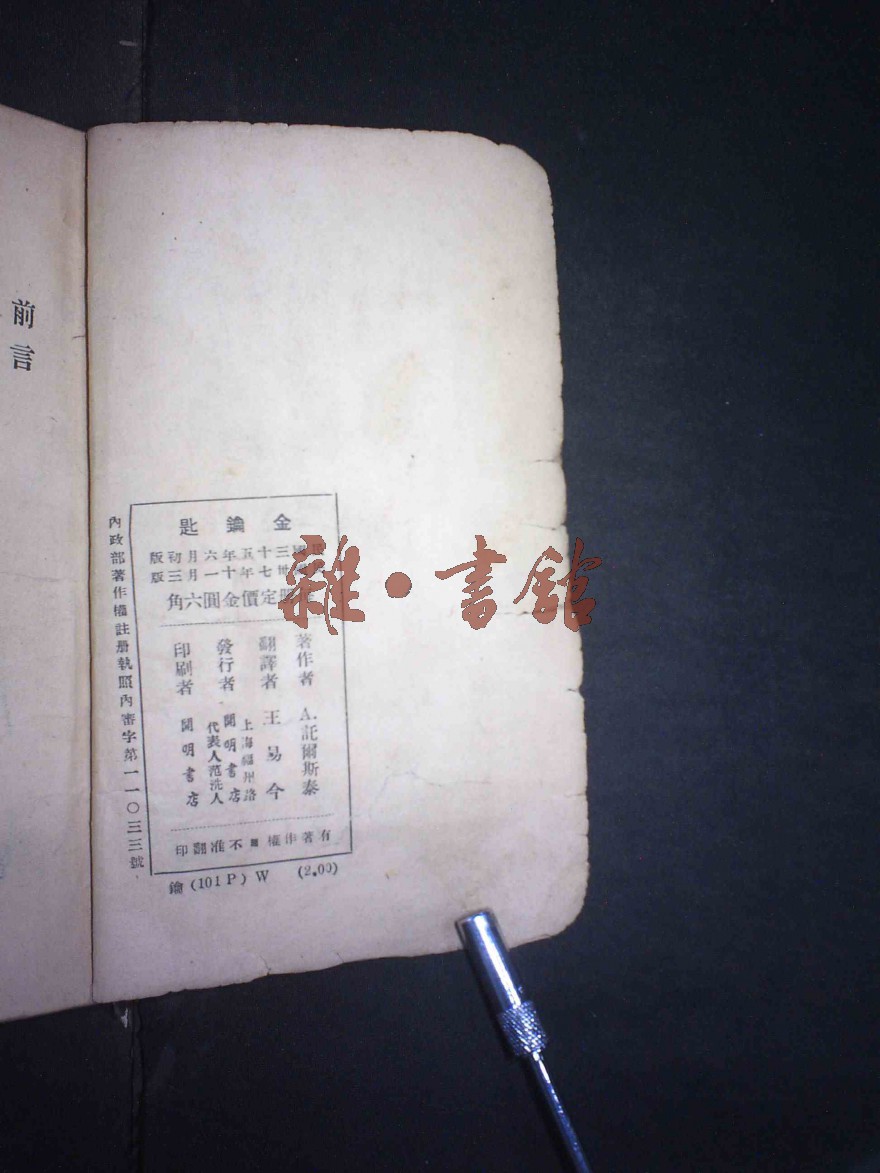 前言
金鑰匙
三十五年六月初版
卅七年十一月三版
定價金圓六角
著作者 A.託爾斯泰
翻譯者 王易今
發行者 上海福州路 開明書店 代表人范洗人
印刷者 開明書店
有著作權■不准翻印
內政部著作權註册執照內審字第一一〇三三號
鑰(101P)W (2.00)
雜·書館